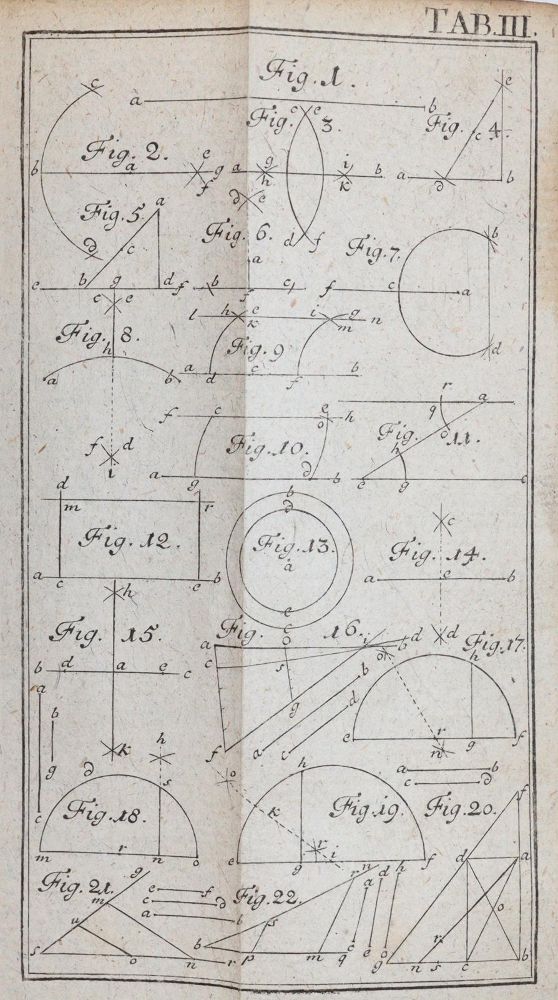 TAB.III.
Fig. 1.
c
e
a
b
c e
Fig. 3.
Fig. 4.
c
Fig. 2.
b
a
e
g
f
a
g
h
i
k
b
a
d
b
Fig. 5.
a
d
c
d e
Fig. 6.
d
f
Fig. 7.
b
c
a
d
e
b
g
d
a
f
b
c
f
f
c e
Fig. 8.
h
a
b
f
d
i
l
h
e
k
i
g
m
n
Fig. 9
a
d
c
f
b
f
c
e
o
h
Fig. 10.
a
g
d
b
r
a
q
d
Fig. 11.
h
e
g
c
d
m
r
Fig. 12.
a
c
e
b
b
d
Fig. 13.
a
e
c
c
Fig. 14.
a
e
b
d
h
Fig. 15.
b
d
a
e
c
k
Fig. 16.
a
c
o
i
b
d
s
g
b
d
f
a
c
o
Fig. 17.
h
e
r
n
g
f
a
b
g
c
h
d
s
Fig. 18.
m
r
n
o
o
h
k
Fig. 19.
r
i
e
g
f
a
b
c
d
Fig. 20.
f
d
a
o
r
g
n
s
c
b
Fig. 21.
g
m
u
s
o
n
r
e
f
c
d
a
b
Fig. 22.
r
n
s
b
p
m
q
a
d
h
c
e
g